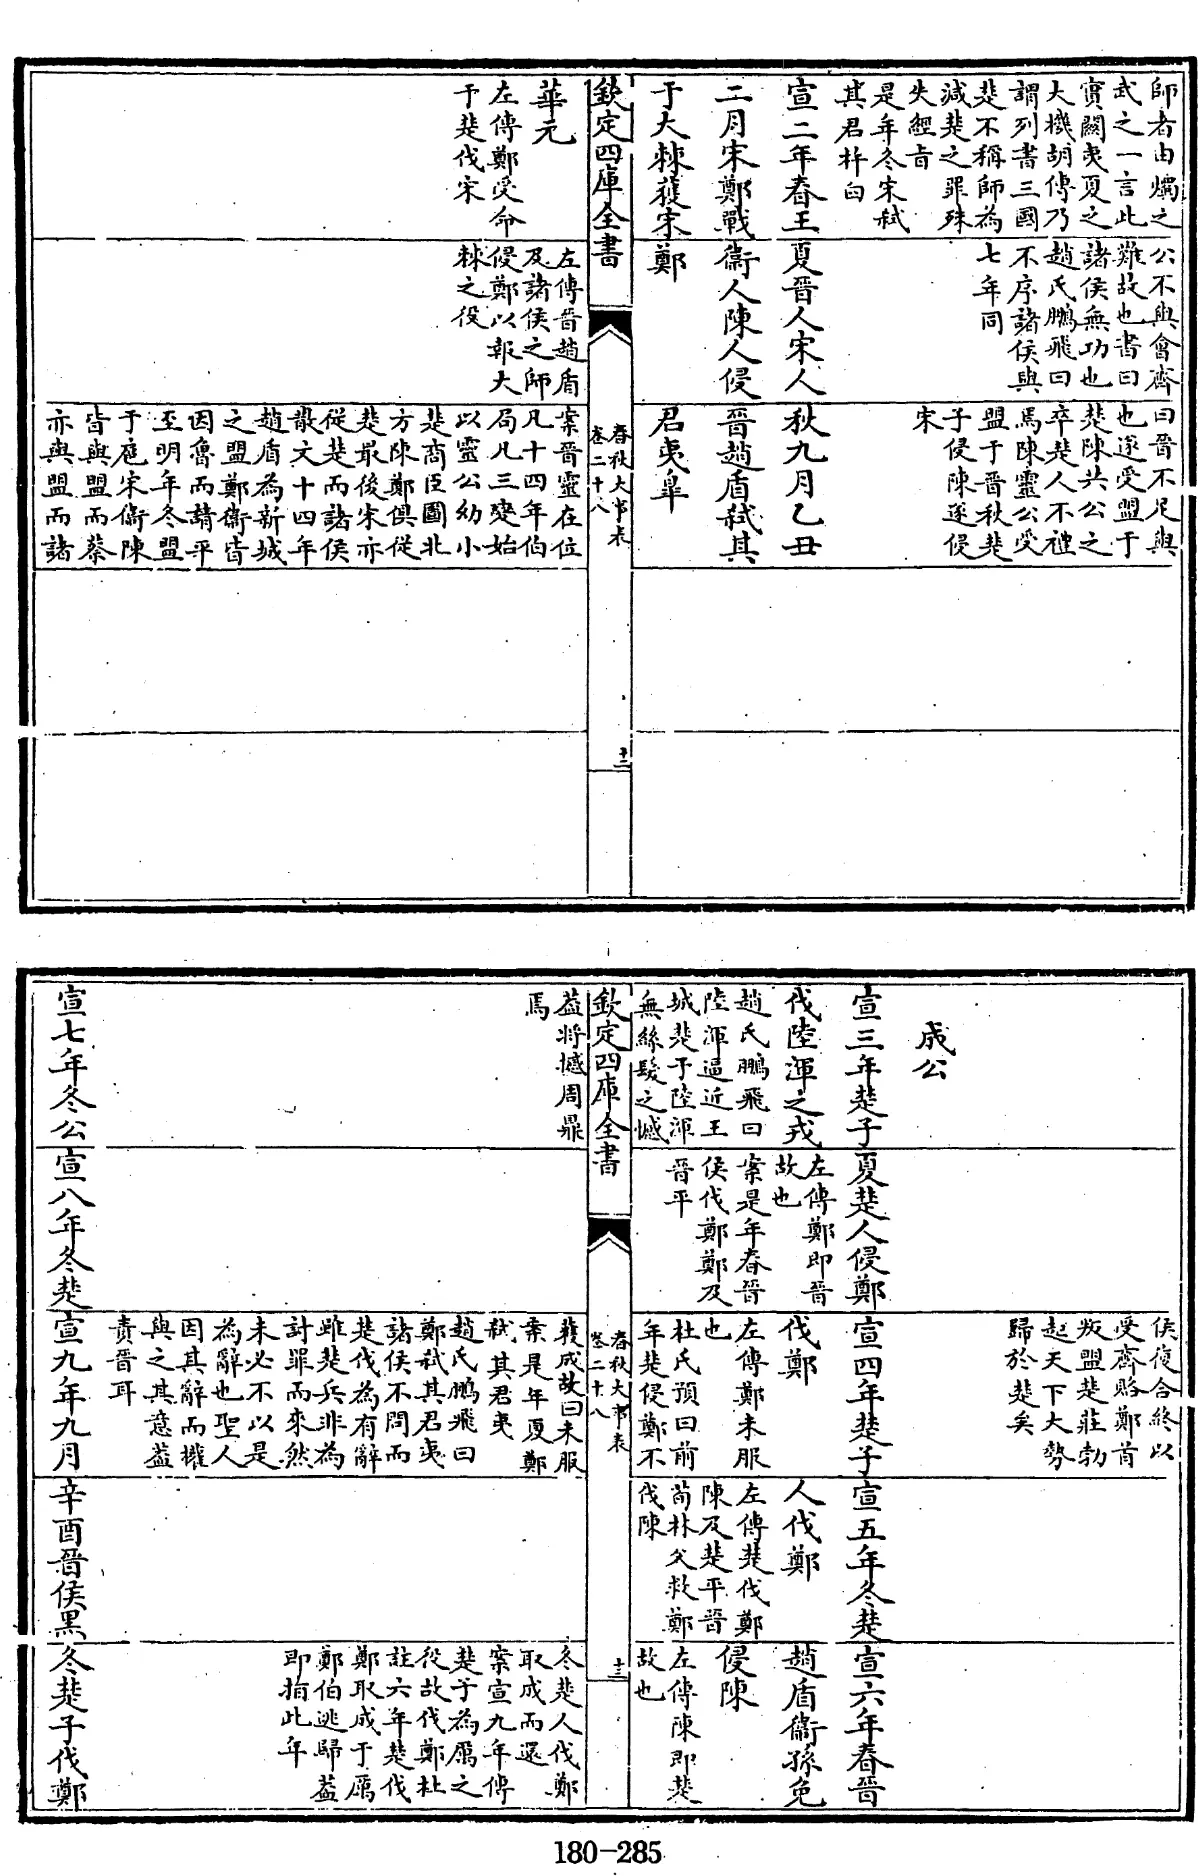 師者由燭之
武之一言此
實闗夷夏之
大機胡傳乃
謂列書三國
楚不稱師為
減楚之罪殊
失經㫖
是年冬宋弑
其君杵臼
宣二年春王
二月宋鄭戰
于大棘獲宋
公不與會齊
難故也書曰
諸侯無功也
趙氏鵬飛曰
不序諸侯與
七年同
夏晉人宋人
衞人陳人侵
鄭
曰晉不足與
也遂受盟于
楚陳共公之
卒楚人不禮
焉陳靈公受
盟于晉秋楚
子侵陳遂侵
宋
秋九月乙丑
晉趙盾弑其
君夷臯
欽定四庫全書
春秋大事表
卷二十八
十二
華元
左傳鄭受命
于楚伐宋
左傳晉趙盾
及諸侯之師
侵鄭以報大
棘之役
案晉靈在位
凡十四年伯
局凡三變始
以靈公幼小
楚商臣圖北
方陳鄭俱從
楚最後宋亦
從楚而諸侯
散文十四年
趙盾為新城
之盟鄭衞皆
因魯而請平
至明年冬盟
于扈宋衞陳
皆與盟而蔡
亦與盟而諸
成公
宣三年楚子
伐陸渾之戎
趙氏鵬飛曰
陸渾逼近王
城楚于陸渾
無絲髮之憾
夏楚人侵鄭
左傳鄭即晉
故也
案是年春晉
侯伐鄭鄭及
晉平
侯復合終以
受齊賂鄭首
叛盟楚莊勃
起天下大勢
歸於楚矣
宣四年楚子
伐鄭
左傳鄭未服
也
杜氏預曰前
年楚侵鄭不
宣五年冬楚
人伐鄭
左傳楚伐鄭
陳及楚平晉
荀林父救鄭
伐陳
宣六年春晉
趙盾衞孫免
侵陳
左傳陳即楚
故也
欽定四庫全書
春秋大事表
卷二十八
十三
葢將撼周鼎
焉
宣七年冬公
宣八年冬楚
獲成故曰未服
案是年夏鄭
弑其君夷
趙氏鵬飛曰
鄭弑其君夷
諸侯不問而
楚伐為有辭
雖楚兵非為
討罪而來然
未必不以是
為辭也聖人
因其辭而權
與之其意葢
責晉耳
宣九年九月
辛酉晉侯黒
冬楚人伐鄭
取成而還
案宣九年傳
楚子為厲之
役故伐鄭杜
註六年楚伐
鄭取成于厲
鄭伯逃歸葢
即指此年
冬楚子伐鄭
180-285